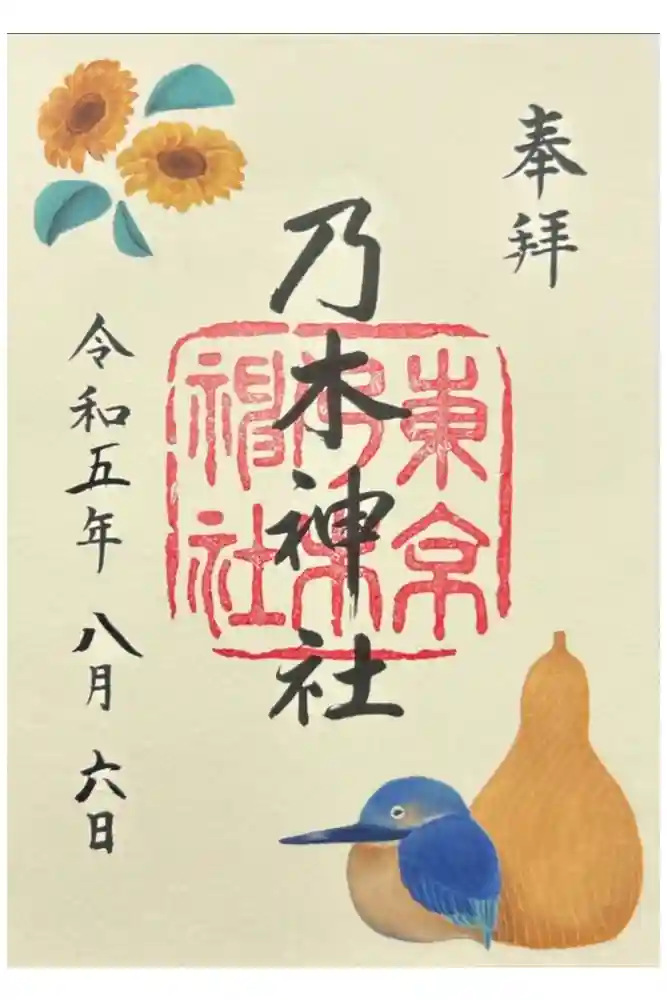 奉拝
東京
乃木
神社
乃木神社
令和五年 八月 六日